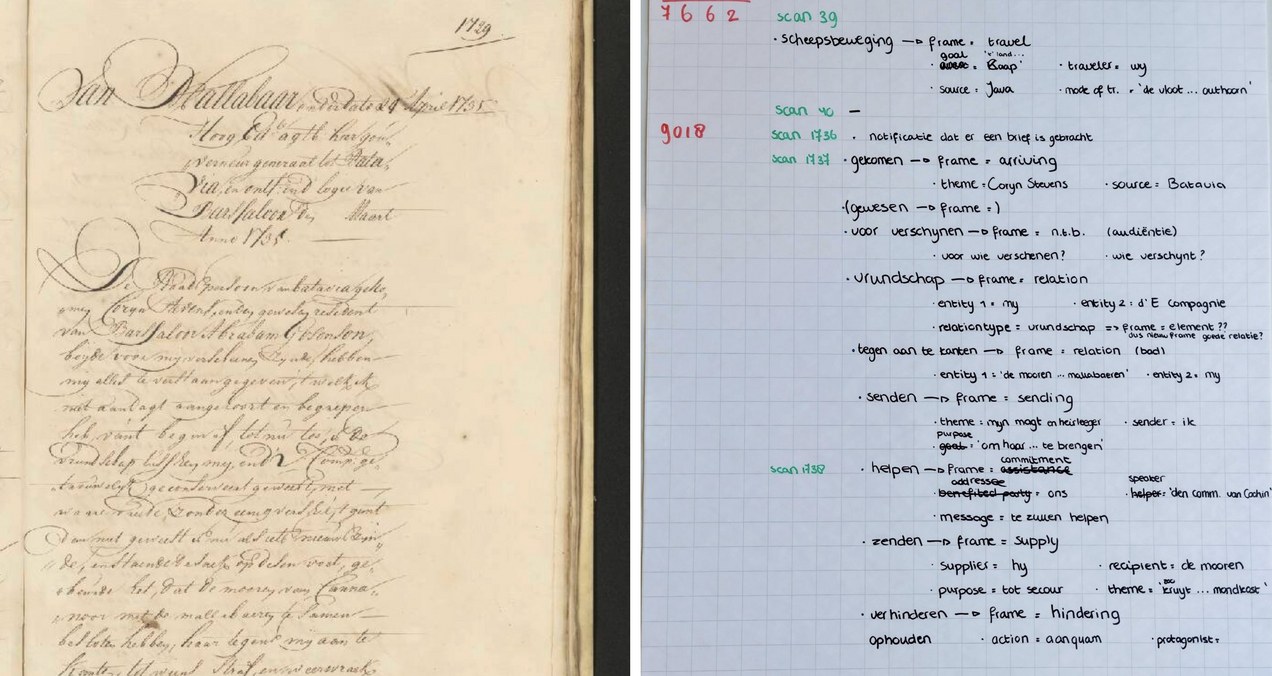 1729
Van Mallabaar onder dato 24 April 1735
Hoog Ed.
verneur generaal tot Bata„
via, en ontf: uijt loger van
Barssaloor den Maart
Anno 1735.
De Raad persoon van batavia geko„
men Coryn Stevens, en den gewesen resident
van Barssaloor Abraham Gosenson,
beyde voor my verschenen zynde, hebben
my alles te verstaan gegeven, 't welk ik
met aandagt aangehoort en begrepen
heb, want begin af, tot nu toe, is de
vrundschap tusschen my, en d' E Comp: ge„
trouwelyk geconserveert geweest, met
waarde, zonder eenig verschil, 't gunt
dan met geweest is nu als iets nieuws
de, en staende de saak op desen voet, ge„
beurde het, dat de mooren van Canna„
noor met de mallabaeren te samen
besloten hebben, haar tegens my aan te
kanten, tot wiens straf, en weerwraak
7662
scan 39
· scheepsbeweging → frame = travel
goal 'v' land...
= Kaap' · traveler = wy
· source = Java · mode of tr. = 'de vloot ... authoorn'
scan 40 —
9018
scan 1736 · notificatie dat er een brief is gebracht
scan 1737 · gekomen → frame = arriving
· theme = Coryn Stevens · source = Batavia
·(gewesen → frame = )
· voor verschynen → frame = n.t.b. (audiëntie)
· voor wie verschenen? · wie verschynt?
· vrundschap → frame = relation
· entity 1 = my · entity 2 = d'E compagnie
· relationtype = vrundschap => frame = element ??
dus nieuw frame goede relatie?
· tegen aan te kanten → frame = relation (bad)
· entity 1 = 'de mooren ... mallabaeren' · entity 2 = my
· senden → frame = sending
· theme = myn magt en heirleeger · sender = ik
purpose
· goal = 'om haar ... te brengen'
commitment
scan 1738 · helpen → frame = assistance
addressee speaker
· benefited party = ons · helper = 'den comm. van Cochin'
· message = te zullen helpen
· zenden → frame = supply
· supplier = hy · recipient = de mooren
· purpose = tot secour · theme = 'kruyt ... mondkost'
· verhinderen → frame = hindering
ophouden · action = aanquam · protagonist =